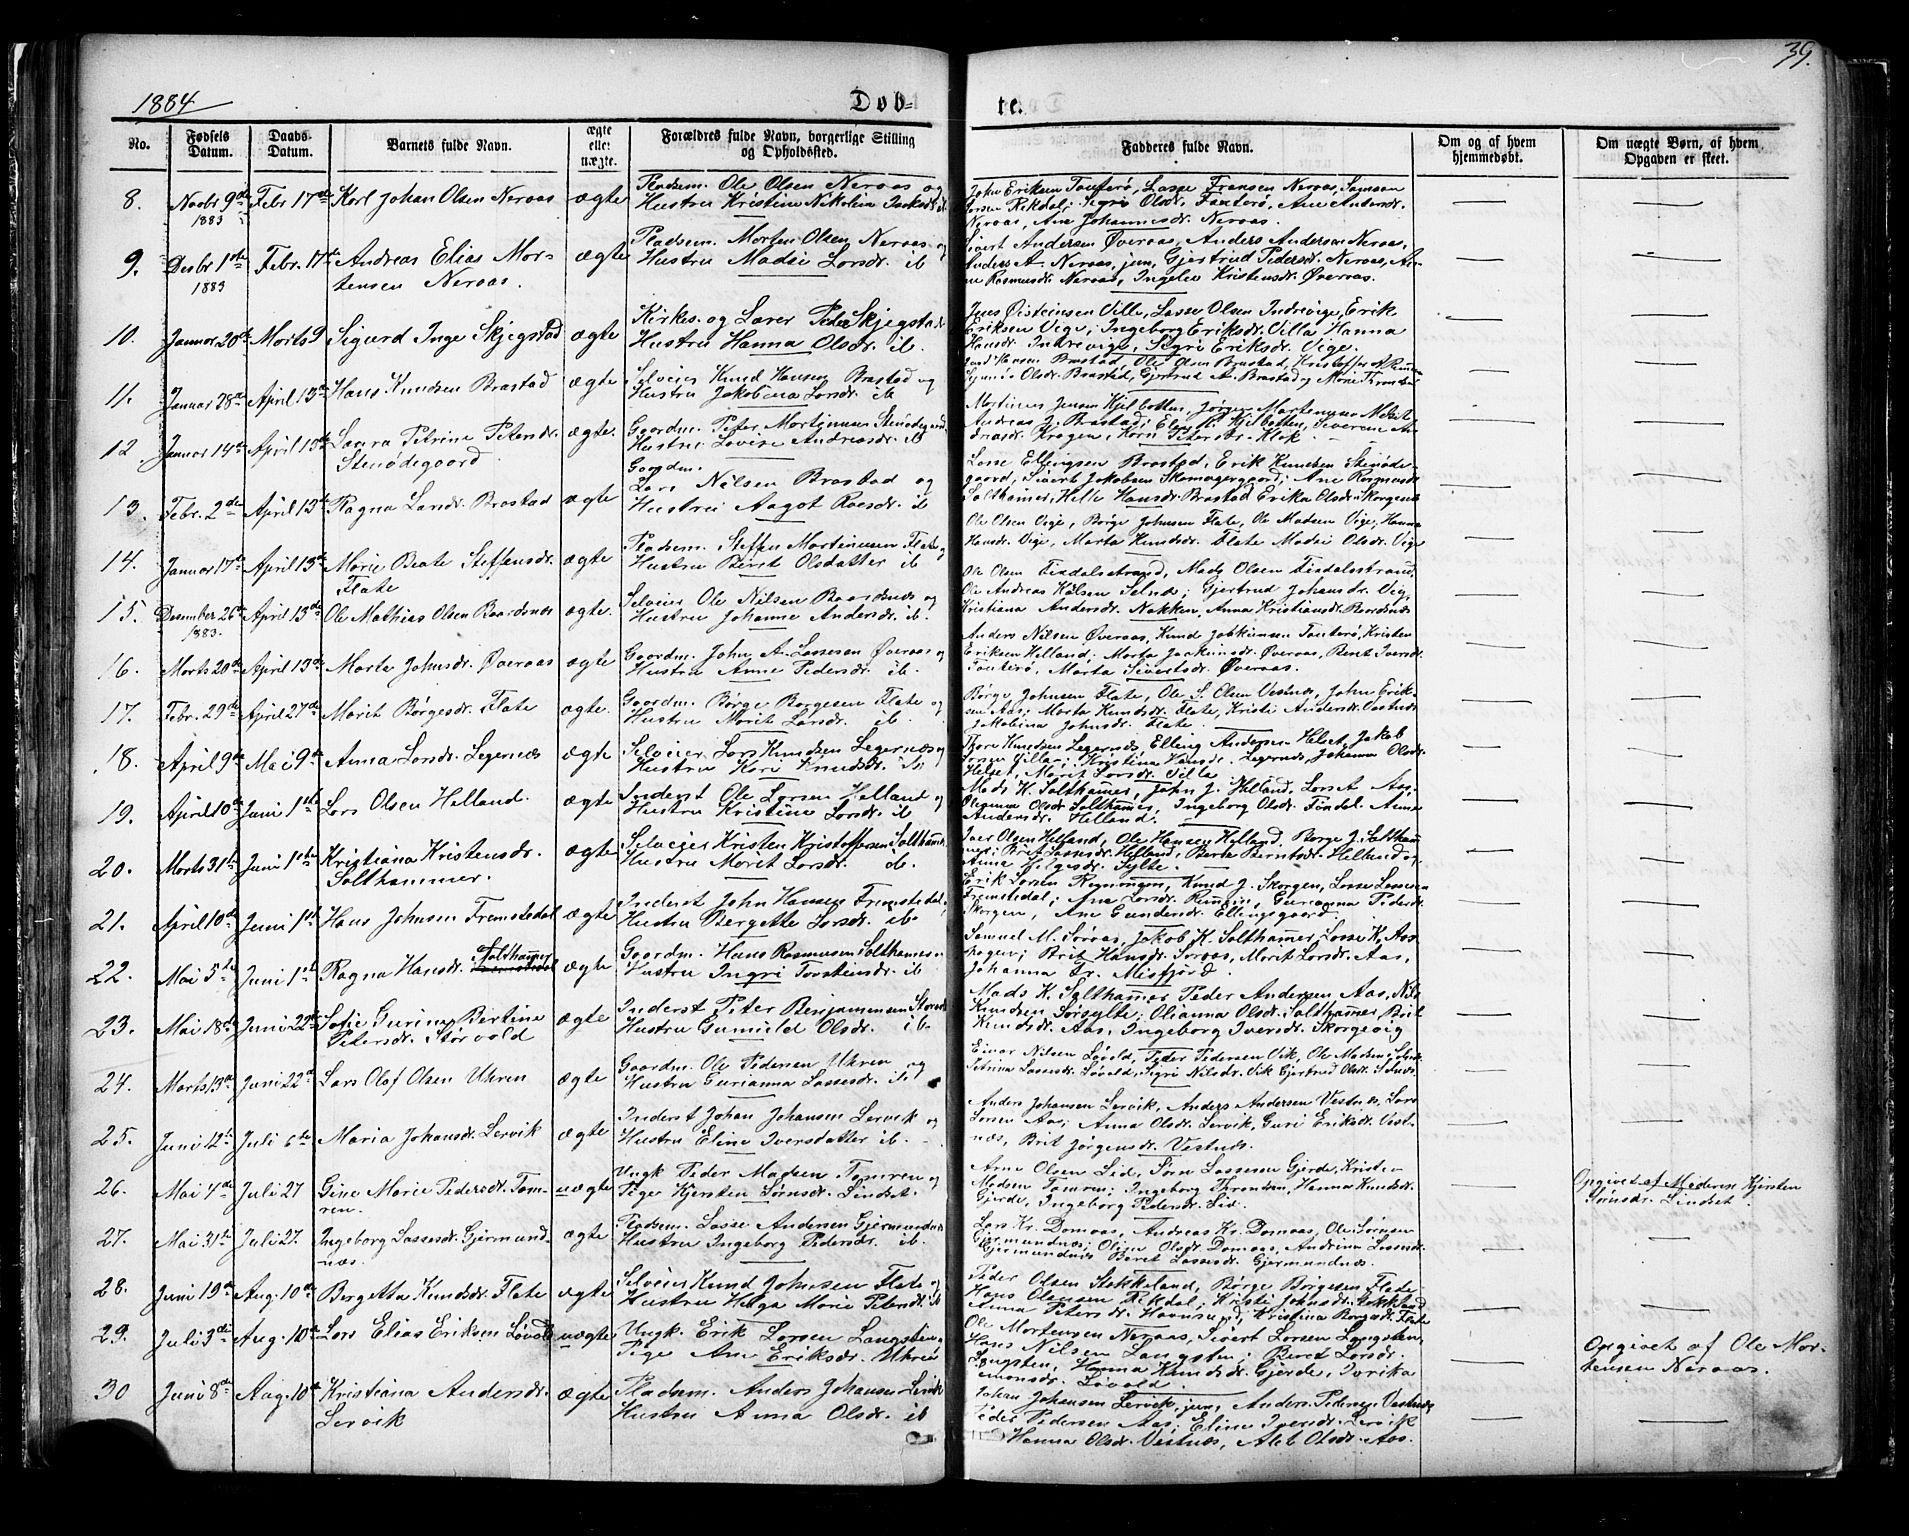 39.
1884
Døb-
te.
No.
Fødsels Datum.
Daabs- Datum.
Barnets fulde Navn.
ægte eller uægte.
Forældres fulde Navn, borgerlige Stilling og Opholdssted.
Fadderes fulde Navn.
Om og af hvem hjemmedøbt.
Om uægte Børn, af hvem Opgaven er skeet.
8. Novbr 9de 1883 Febr 17de Karl Johan Olsen Neraas ægte Pladsm. Ole Olsen Neraas og
Hustru Kristine Nikolina ib
John Eriksen Tauterø, Lasse Fransen Neraas, Samson
Rekdal; Sigri Olsdr. Tauterø, Ane Andersdr.
Neraas, Ane Johannesdr. Neraas.
9. Desbr 1ste 1883 Febr. 17de Andreas Elias Mor-
tensen Neraas. ægte Pladsm. Morten Olsen Neraas og
Hustru Madsi Larsdr. ib
Sivert Andersen Øveraas, Anders Andersen Neraas,
Anders A. Neraas, jun, Gjertrud Pedersdr. Neraas, An-
ne Rasmusdr. Neraas, Ingelev Kristensdr. Øveraas.
10. Januar 20de Marts 9 Sigurd Inge Skjegstad ægte Kirkes. og Lærer Peder Skjegstad
Hustru Hanna Olsdr. ib
Jens Øisteinsen Villa, Lasse Olsen Indrevige, Erik
Eriksen Vige; Ingeborg Eriksdr. Villa Hanna
Hansdr. Indrevige, Sigri Eriksdr. Vige.
11. Januar 28de April 13de Hans Knudsen Brastad ægte Selveier Knud Hansen Brastad og
Hustru Jakobina Larsdr. ib
Hansen Brastad, Ole Olsen Brastad, Kristoffer
Olsdr. Brastad, Gjertrud A. Brastad og Marie
12 Januar 14de April 13de Laura Petrine Petersdr.
Stenødegaard ægte. Gaardm. Peter Martinusen Stenødegaard
Hustru Lovise Andreasdr. ib
Martinus Jensen Kjelbotten, Jørgen Martinusen
Andreas J. Brastad; Kjelbotten, Severine An-
dreasdr. Kragen, Karn Petersdr. Klok.
13. Febr. 2den April 13de Ragna Larsdr. Brastad ægte Gaardm.
Lars Nilsen Brastad og
Hustru Aagot Roesdr. ib
Lasse Ellingsen Brastad, Erik Knudsen Stenøde-
gaard, Sivert Jakobsen Skomagergaard; Ane Rasmusdr.
Salthamer, Helle Hansdr. Brastad Erika Olsdr. Skorgenes
14. Januar 17de April 13de Marie Beate Steffensdr.
Flate ægte Pladsm. Steffen Martinusen Flate og
Hustru Berit Olsdatter ib
Ole Olsen Vige, Børge Johnsen Flate, Ole Madsen Vige, Hanna
Hansdr. Vige, Marta Knudsdr. Flate Madsi Olsdr. Vige
15. Desember 26de 1883. April 13de Ole Mathias Olsen Baardsnes ægte. Selveier Ole Nilsen Baardsnes og
Hustru Johanne Andersdr. ib.
Ole Olsen Fixdalsstrand, Mads Olsen Fixdalsstrand,
Ole Andreas Selnes; Gjertrud Johansdr. Vig,
Kristiana Andersdr. Nakken, Anna Kristiansdr. Baardsnes
16. Marts 20de April 13de Marta Johnsdr. Øveraas ægte Gaardm. John A. Lassesen Øveraas og
Hustru Anne Pedersdr. ib
Anders Nilsen Øveraas, Knud Tauterø, Kristen
Eriksen Helland; Marta Øveraas, Berit Iversdr.
Tauterø, Marta Sivertsdr. Øveraas.
17. Febr. 29de April 27de Marit Børgesdr. Flate ægte. Gaardm. Børge Børgesen Flate og
Hustru Marit Larsdr. ib.
Børge Johnsen Flate, Ole S. Olsen Vestnes, John Erik-
sen Aas; Marta Knudsdr. Flate, Kristi Andersdr. Vestnes
Jakobina Johnsdr. Flate.
18. April 9de Mai 9de Anna Larsdr. Legernes ægte Selveier Lars Knudsen Legernes og
Hustru Kari Knudsdr. ib.
Thore Knudsen Legernes, Elling Andersen Helset, Jakob
Larsen Villa; Kristina Hansdr. Legernes, Johanna Olsdr.
Helset, Marit Larsdr. Villa
19. April 10de Juni 1ste Lars Olsen Helland. ægte Inderst Ole Larsen Helland og
Hustru Kristine Larsdr. ib
Mads K. Salthamer, John J. Helland, Lars Aas,
Olianna Olsdr. Salthamer, Ingeborg Olsdr. Anna
Andersdr. Helland.
20. Marts 31te Juni 1ste Kristiana Kristensdr.
Salthammer. ægte Selveier Kristen Kristoffersen Salthamer
Hustru Marit Larsdr. ib.
Iver Olsen Helland, Ole Hansen Helland, Børge J. Saltham-
mer; Brit Lassesdr. Helland, Berta Berntsdr. Helland og
Anna Helgesdr. Sylte.
21. April 10de Juni 1ste Hans Johnsen Fremstedal ægte Inderst John Hansen Fremstedal,
Hustru Bergette Larsdr. ib.
Erik Larsen, Knud J. Skorgen, Lasse Lassesen
Fremstedal; Ane Larsdr. Gurianna Pedersdr.
Skorgen, Ane Gundersdr. Ellingsgaard.
22. Mai 5te Juni 1ste Ragna Hansdr. Salthamer ægte Gaardm. Hans Rasmusen Salthamer og
Hustru Ingri Torsteinsdr. ib
Samuel M. Søraas, Jakob K. Salthamer, Lasse K. Aas-
Brit Hansdr. Søraas, Marit Larsdr. Aas,
Johanna Misfjord.
23. Mai 18de Juni 22de Sofie Gurine Bertine
Petersdr. Størvold ægte Inderst Peter Benjaminsen
Hustru Gunild Olsdr. ib.
Mads K. Salthamer Peder Andersen Aas, Nils
Knudsen Sørsylte; Olianna Olsdr. Salthamer, Brit
Knudsdr. Aas, Ingeborg Iversdr. Skorgevig
24. Marts 13de Juni 22de Lars Olaf Olsen Ukren ægte Gaardm. Ole Pedersen Ukren og
Hustru Gurianna Lassesdr. ib
Einar Nilsen Løvold, Peder Pedersen Vik, Ole Madsen
Petrina Lassesdr. Løvold, Sigri Nilsdr. Vik Gjertrud Olsdr. Selnes.
25. Juni 12te Juli 6te Maria Johansdr. Lervik ægte Inderst Johan Johansen Lervik og
Hustru Eline Iversdatter ib.
Anders Johansen Lervik, Anders Andersen Vestnes, Lars
Larsen Aas; Anna Olsdr. Lervik, Guri Eriksdr. Vest-
nes, Brit Jørgensdr. Vestnes.
26. Mai 4de Juli 27 Gine Marie Pedersdr. Tom-
ren. uægte Ungk. Peder Madsen Tomren og
Pige Kjersten Sørnsdr. Lindset.
Arne Olsen Lid, Sørn Lassesen Gjerde, Kristen
Madsen Tomren; Ingeborg Throndsen, Hanna Knudsdr.
Gjerde, Ingeborg Pedersdr. Lid.
Opgivet af Moderen Kjersten
Sørnsdr. Lindset.
27. Mai 31te Juli 27. Ingeborg Lassesdr. Gjermund-
nes. ægte Pladsm. Lasse Andersen Gjermundnes
Hustru Ingeborg Pedersdr. ib.
Lars Kr. Domaas, Andreas Kr. Domaas, Ole Sørnsen
Gjermundnes; Oline Olsdr. Domaas, Andrina Lassesdr.
Gjermundnes Berit Lassesdr. Gjermundnes.
28. Juni 19de Aug. 10de Bergetta Knudsdr. Flate ægte Selveier Knud Johnsen Flate og
Hustru Helga Marie Petersdr. ib
Peder Olsen Stokkeland, Børge Børgesen Flate
Hans Olausen Rekdal; Kristi Johnsdr. Stokkeland
Anna Petersdr. Kristina Børgesdr. Flate
29. Juli 3die Aug. 10de Lars Elias Eriksen Løvold uægte Ungk. Erik Larsen Langsten,
Pige Ane Eriksdr. Ukren
Ole Mortensen Neraas, Sivert Larsen Langsten,
Hans Nilsen Langsten; Berit Larsdr.
Langsten, Hanna Knudsdr. Gjerde,
Løvold.
Opgivet af Ole Mor-
tensen Neraas.
30 Juni 8de Aug. 10de Kristiana Andersdr.
Lervik ægte Pladsm. Anders Johansen Lervik
Hustru Anna Olsdr. ib
Johan Johansen Lervik, jun, Anders Pedersen Vestnes,
Peder Pedersen Aas; Eline Iversdr. Lervik
Hanna Olsdr. Vestnes, Alet Olsdr. Aas.